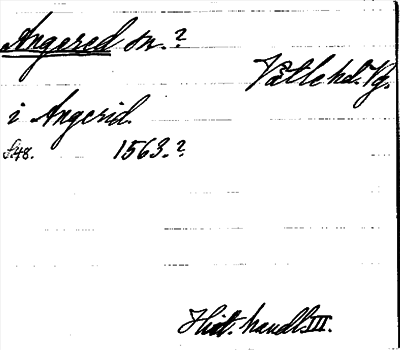 Angered sn.?
Vättle hd. Vg.
i Angerid.
s. 48. 1563.?
Hist. handl. III.